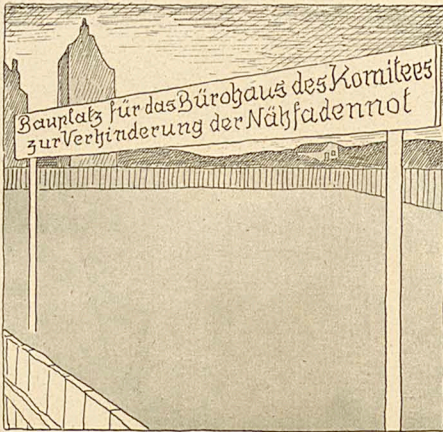 Bauplatz für das Bürohaus des Komitees
zur Verhinderung der Nähfadennot